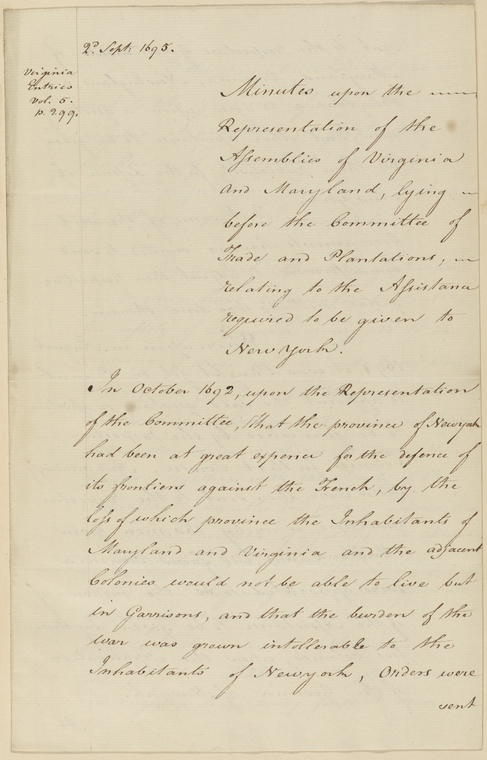 2.d Sept. 1695.
Virginia
Entries
Vol. 5.
p. 299.
Minutes upon the
Representation of the
Assemblies of Virginia
and Maryland, lying
before the Committee of
Trade and Plantations,
relating to the Assistance
required to be given to
New York.
In October 1692, upon the Representation
of the Committee, that the province of Newyork
had been at great expence for the defence of
its frontiers against the French, by the
loss of which province the Inhabitants of
Maryland and Virginia and the adjacent
Colonies would not be able to live but
in Garrisons, and that the burden of the
war was grown intollerable to the
Inhabitants of Newyork, Orders were
sent